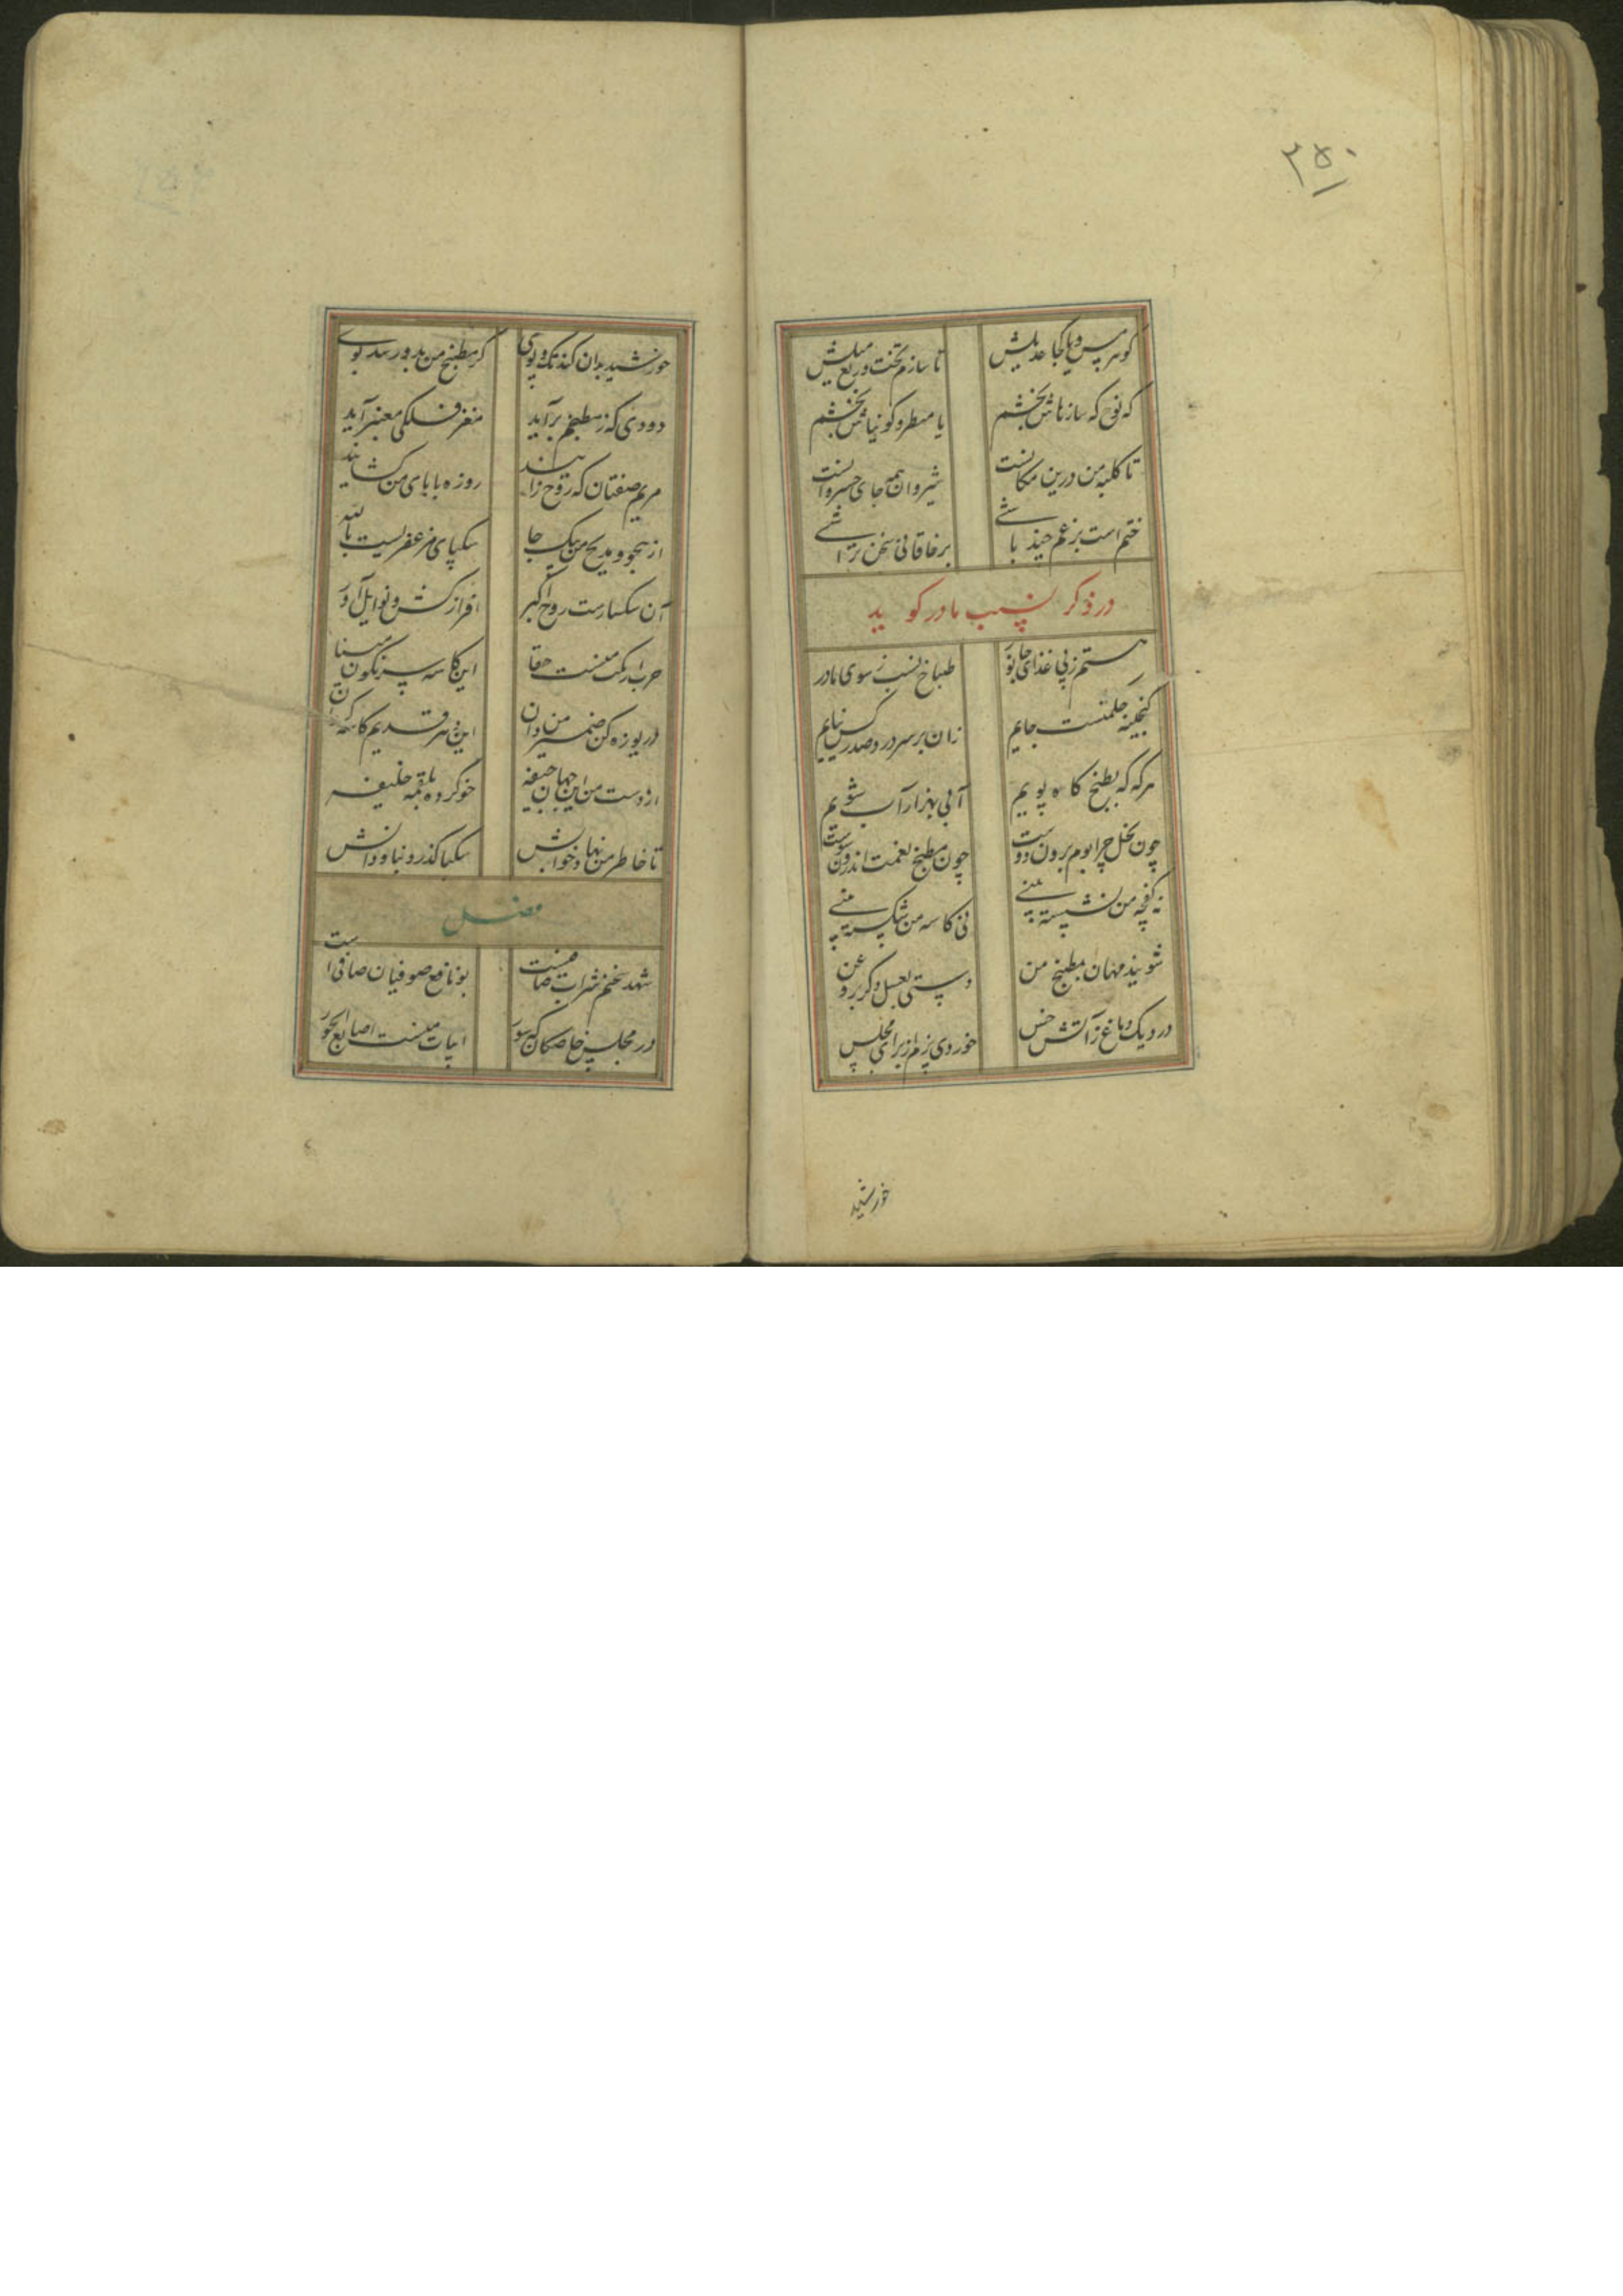 ۳۵۰
کو هرمس و یا کجا عدیلش تا سازم تخت و ربع میلش
که نوح که سازهاش بخشم یا مسطر و کونیاش بخشم
تا کلبه من درین مکانست شروان همه جای خسروانست
ختم است بزعم چند باشی بر خاقانی سخن تراشی
در ذکر نسب مادر کوید
هستم ز پی غذای جانور طباخ نسب ز سوی مادر
کنجینه حکمتست جایم زان بر سر در و صدر کس نیایم
هرکه که بطبخ کاه پویم آبی بهزار آب شویم
چون نخل چرا بوم برون دوست چون مطبخ نعمت اندرون
نه کفچه من نشسته بینی نی کاسه من شکسته بینی
شویند مهمان مطبخ من دستی بعسل دکر بروغن
در دیک دماغ ز آتش حس خوردی پزم از برای مجلس
خورشید
خورشید بدان کند تک و پوی کز مطبخ من بدو رسد بوی
دودی که ز مطبخم برآید مغز فلکی معنبر آید
مریم صفتان که روح زایند روزه بابای من کشایند
از هجو و مدیح من بیک جا سکبای مزعفریست بالله
آن سکسارست روح اکبر افراز کش و نوایل آور
حربا رکت منست حقا این کاسه سرنکون مینا
دریوزه کن ضمیر من دان این سر قدیم کاسه کردان
از دست من این جهان جیفه خو کرده بلقمه خلیفه
تا خاطر من نهاد خوانش سکبا کذرد نباودانش
فصل
شهد سخنم شراب صافیست بو نافع صوفیان صافی است
در مجلس خاصکان که سور ابیات منست اصابع الحور